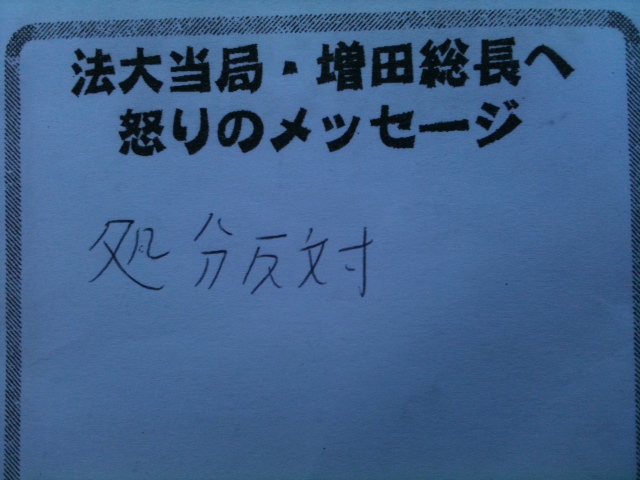 法大当局・増田総長へ
怒りのメッセージ
処分反対